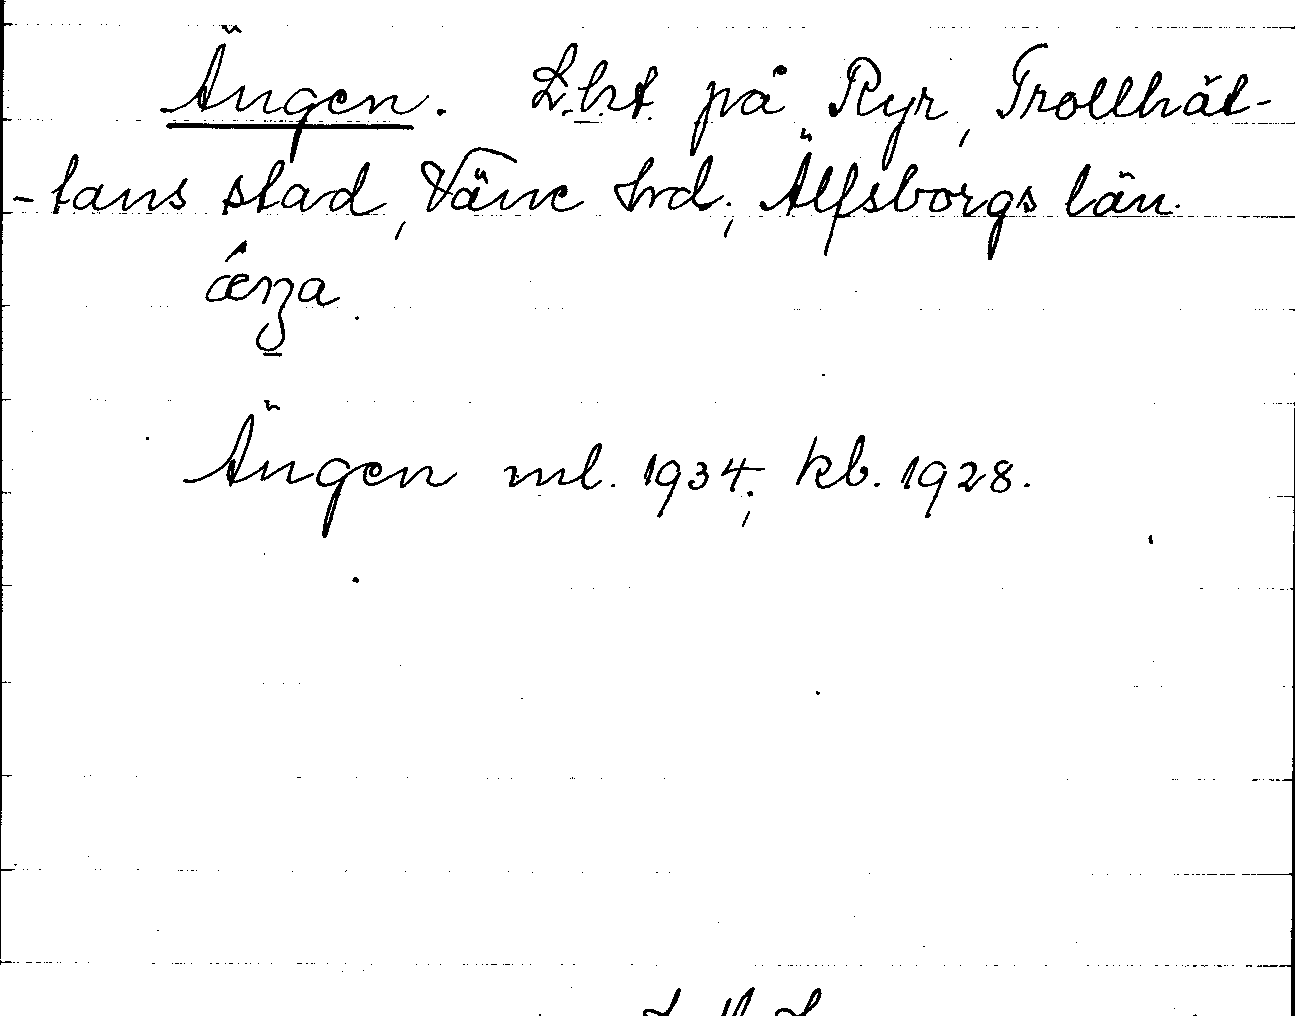 Ängen. Lht på Ryr, Trollhät-
-tans stad, Väne hrd; Älfsborgs län.
Ängen ml. 1934; kb. 1928.